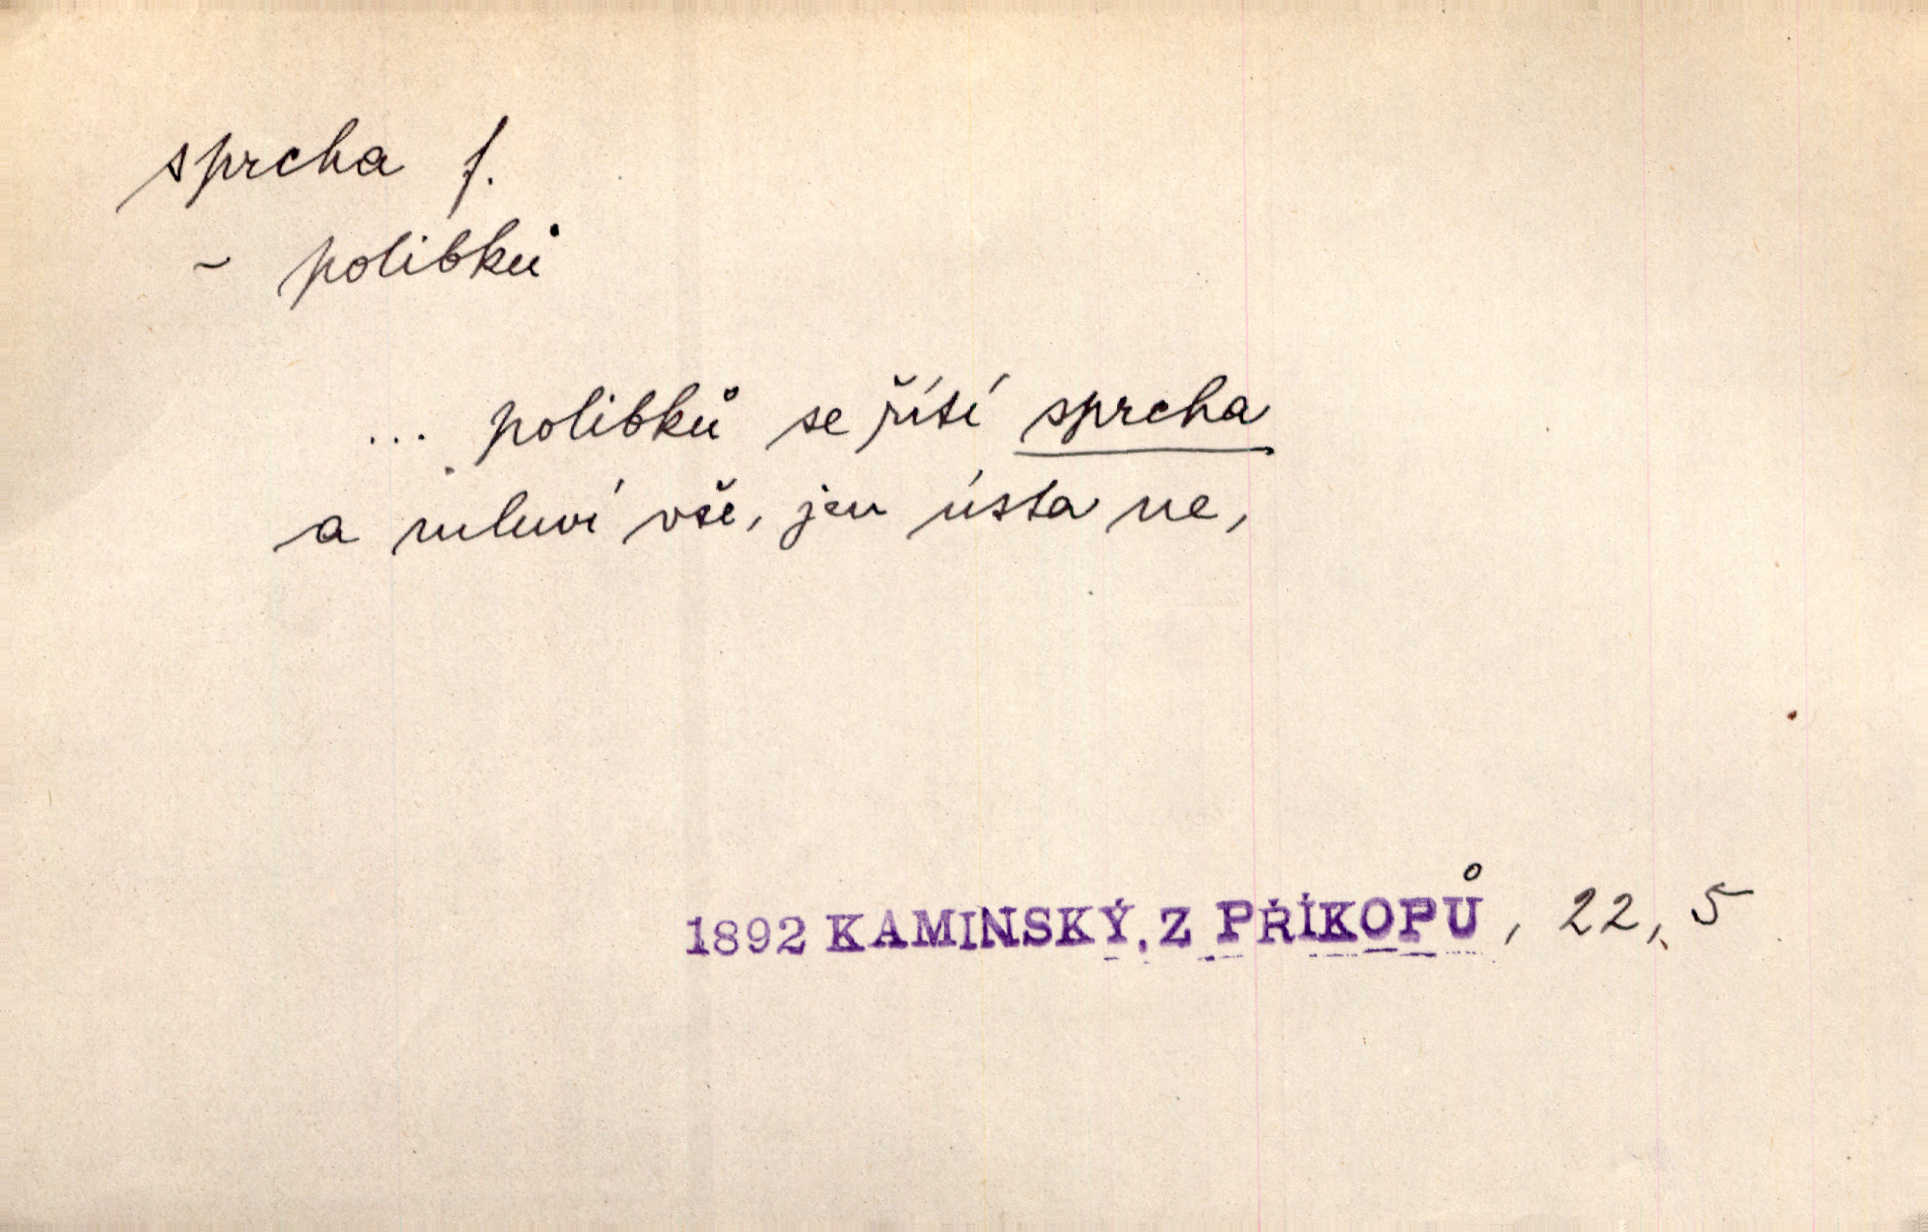 sprcha f.
~ polibků
... polibků se řítí sprcha
a mluví vše, jen ústa ne,
1892 KAMINSKÝ, Z PŘÍKOPŮ, 22, 5